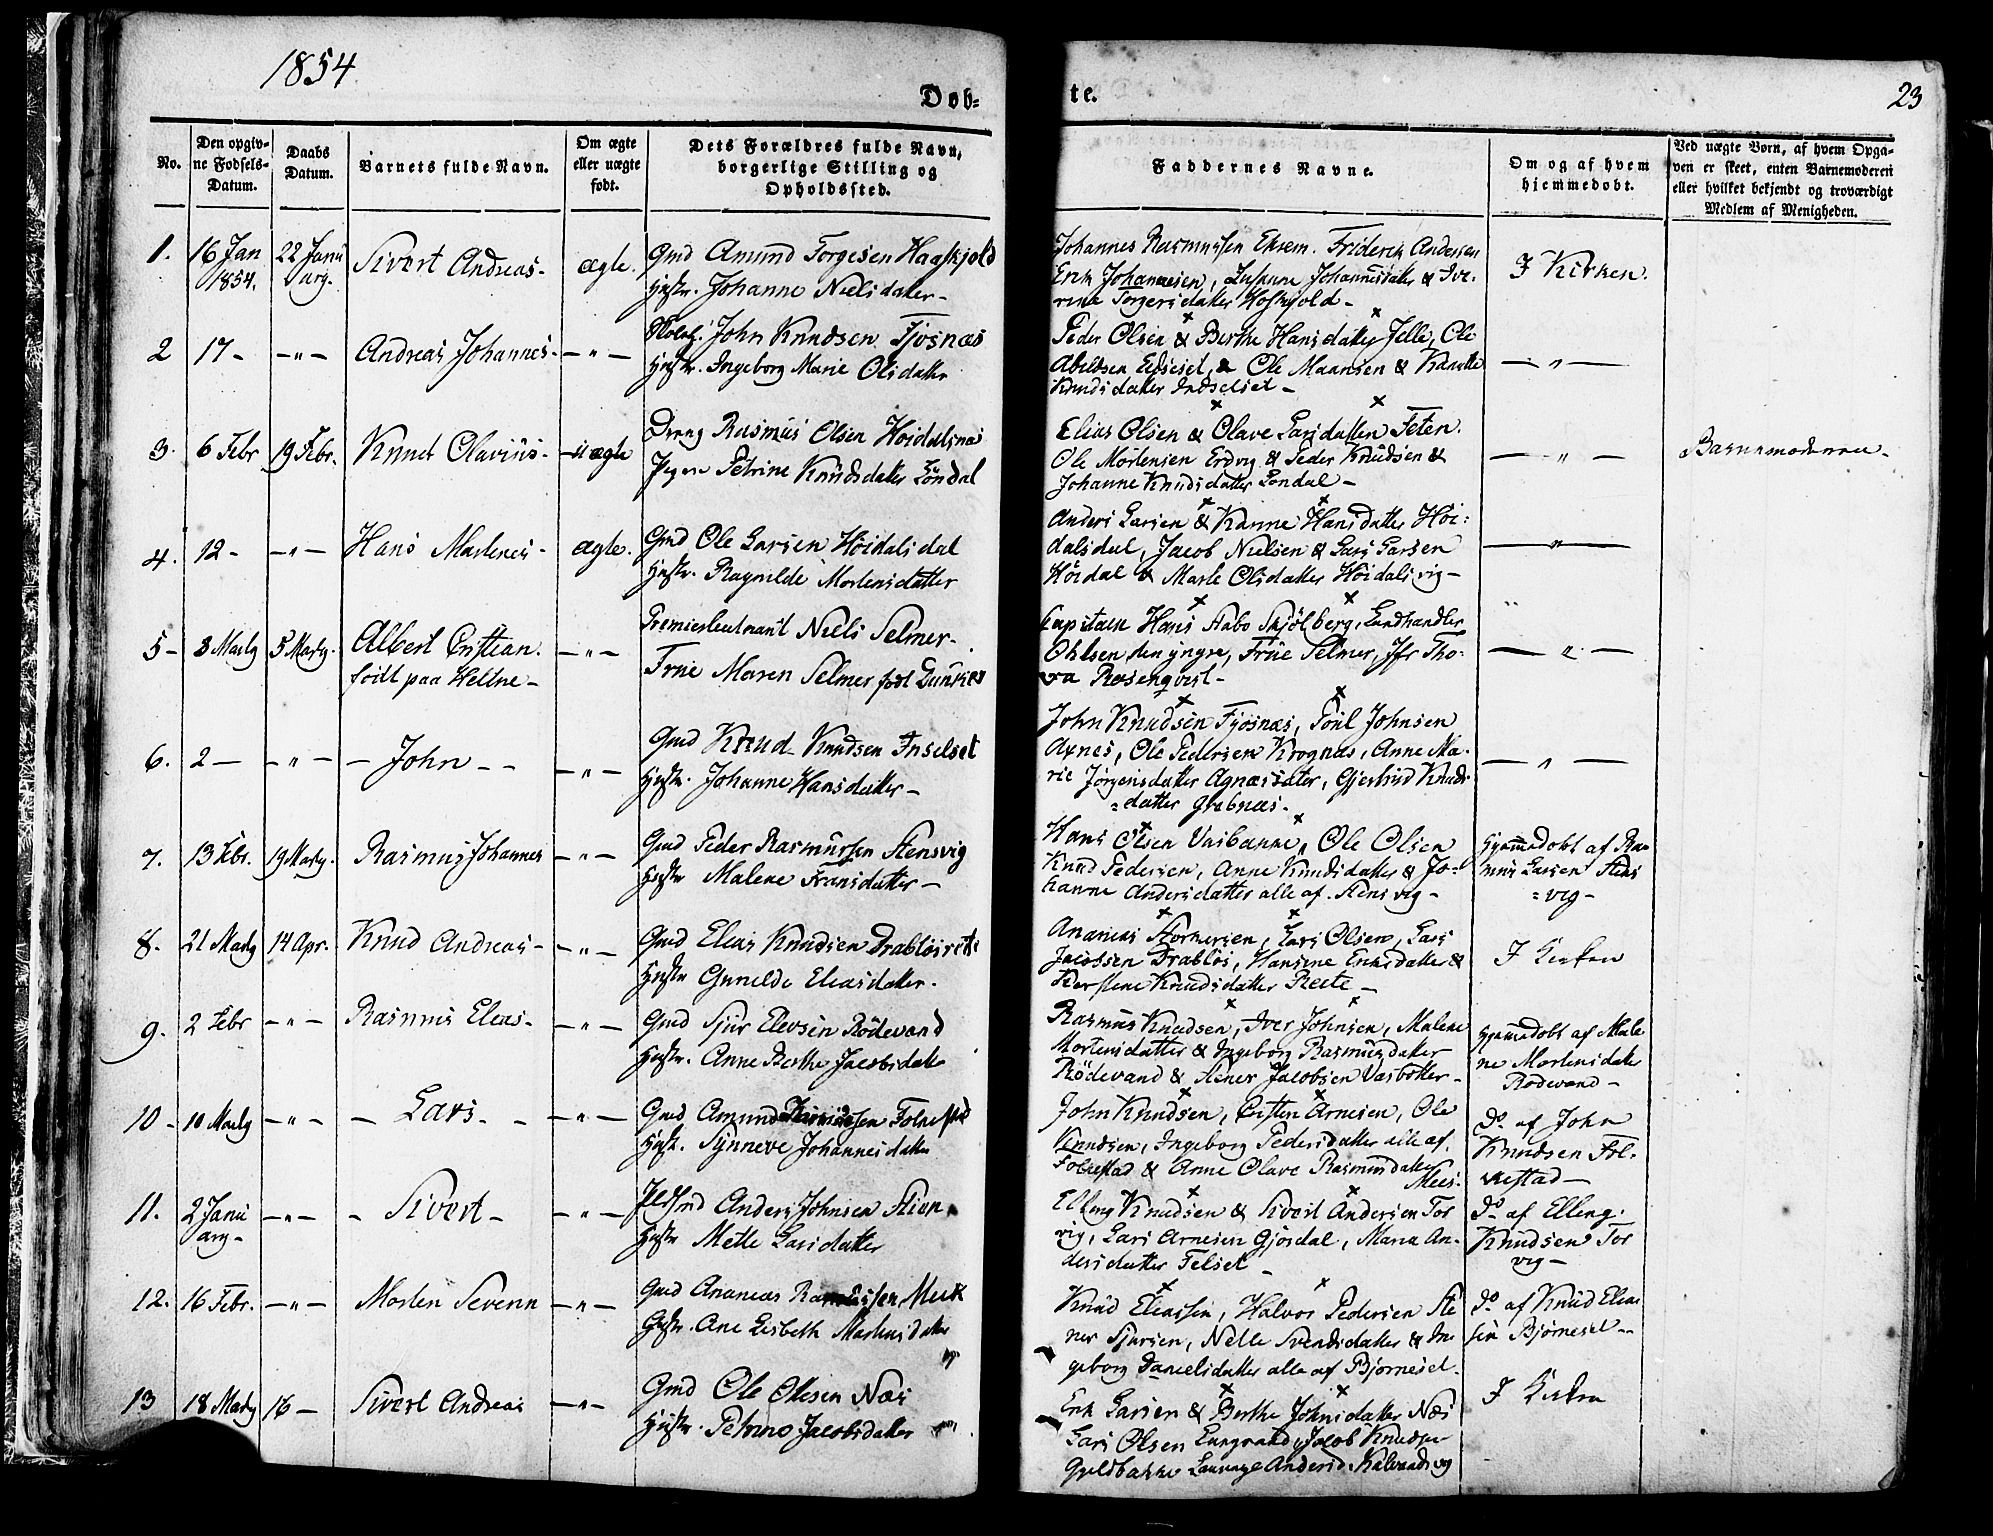 1854
Døb=
te.
23
No.
Den opgiv-
ne Fødsels-
Datum.
Daabs
Datum.
Barnets fulde Navn.
Om ægte
eller uægte
født.
Dets Forældres fulde Navn,
borgerlige Stilling og
Opholdssted.
Faddernes Navne.
Om og af hvem
hjemmedøbt.
Ved uægte Børn, af hvem Opga-
ven er skeet, enten Barnemoderen
eller hvilket bekjendt og troværdigt
Medlem af Menigheden.
1. 16 Jan 22 Janu Sivert Andreas- ægte. Gmd Amund Torgesen
1854. arg. Hustr. Johanne Nielsdatter-
Johannes Rasmussen Ekrem. Friderik Andersen
Erik Johannesen, Susanne Johannesdatter & Ive-
rine Torgersdatter
I Kirken.
2 17 - - " - Andreas Johannes- - " - John Knudsen Fjosnæs
Hustr. Ingeborg Marie Olsdatter
Peder Olsen & Berthe Hansdatter Ole
Ole & 
Knudsdatter Indselset -
- " -
3. 6 Febr 19 Febr. Knud Olavius- uægte Dreng Rasmus Olsen
Pigen Petrine Knudsdatter Løndal
Elias Olsen & Olave Larsdatter Feten.
Ole Mortensen & Peder Knudsen &
Johanne Knudsdatter Løndal -
- " -
Barnemoderen-
4. 12 - - " - Hans Martenes- ægte. Gmd Ole Larsen Höidalsdal
Hustr. Ragnilde Mortensdatter
Anders Larsen & Karine Hansdatter Höi=
dalsdal, Jacob Nielsen & Lars Larsen
Höidal & Marte Olsdatter Höidalsvig -
- " -
5- 3 Marty 5 Marty. Albert Cristian. - " - Premierleutnant Niels Selmer.
født paa Heltne - Frue Maren Selmer født Dunker
Capitain Hans Aabo Skjölberg, Landhandler
Ohlsen den yngre, Frue Selmer, Jfr Tho-
ra Rosenqvist-
- " -
6. 2 - - " - - John - - - " - Gmd Knud Knudsen Inselset
Hustr. Johanne Hansdatter -
John Knudsen Fjösnæs, Poul Johnsen
Axnes, Ole Pedersen Krognæs, Anne Ma-
rie Jørgensdatter Gjertrud Knuds-
=datter
- " -
7. 13 Febr. 19 Marty. Rasmus Johannes - " - Gmd Peder Rasmussen Stensvig
Hustr Malene Fransdatter -
Hans Olsen Ole Olsen
Knud Pedersen, Anne Knudsdatter & Jo-
hanne Andersdatter alle af Stensvig -
Hjemmedøbt af Ras
mus Larsen Stens
=vig-
8. 21 Marty 14 Apr. Knud Andreas - - " - Gmd Elias Knudsen
Hustr Gunilde Eliasdatter.
Ananias Lars Olsen, Lars
Jacobsen Drabløs, Hansine &
Knudsdatter Reite -
I Kirken
9. 2 Febr - " - Rasmus Elias- - " - Gmd Sjur Eliesen Rödevand
Hustr. Anne Berthe Jacobsdatter
Rasmus Knudsen, Iver Johnsen, Malene
Mortensdatter & Ingeborg Rasmusdatter
Rödevand & Jacobsen
Hjemmedøbt af Male
ne Mortensdatter
Rödevand -
10 - 10 Marty - " - - Lars - - - " - Gmd Amund
Hustr. Synneve Johannesdatter
John Knudsen, Cristen Arnesen, Ole
Knudsen, Ingeborg Pedersdatter alle af
Folkestad & Anne Olave Rasmusdatter
Do af John
Knudsen Fol-
kestad -
11. 2 Janu - " - - Sivert - - " - Anders Johnsen
arg- Hustr Mette Larsdatter
Elling Knudsen & Sivert Andersen Tor
vig, Lars Arnesen Gjørdal, Maria An-
dersdatter Felset -
Do af Elling
Knudsen Tor
vig -
12. 16 Febr. - " - Morten Severin - " - Gmd Ananias
Hustr. Ane Lisbeth
Knud Eliassen, Halvor Pedersen
Sjursen, & In
geborg Danielsdatter alle af Bjørneset.
Do af Knud Elias
sen Bjørneset -
13 18 Marty 16 - Sivert Andreas - " - Gmd Ole Olesen Næs
Hustr. Jacobsdatter
Erik Larsen & Berthe Johnsdatter Næs
Lars Olsen Jacob Knudsen
I Kirken